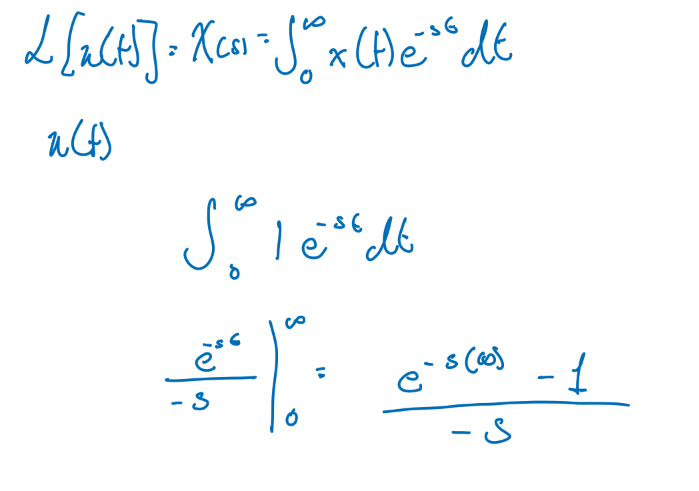 ℒ[x(t)] = X(s) = ∫₀^∞ x(t) e^{-st} dt
u(t)
∫₀^∞ 1 e^{-st} dt
e^{-st} / -s |₀^∞ = (e^{-s(∞)} - 1) / -s